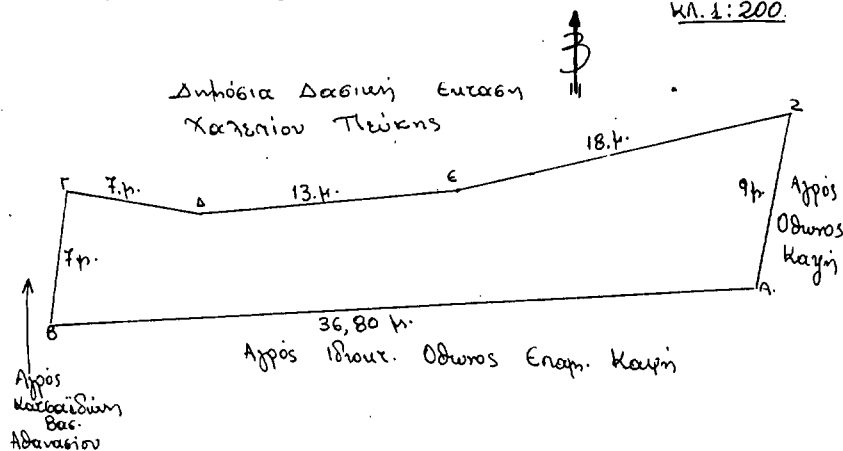 ΚΛ. 1:200
Β
Δημόσια Δασική Εκταση
Χαλεπίου Πεύκης
Ζ
18.μ.
Γ
7.μ.
Δ
13.μ.
Ε
9μ
Αγρός
Οθωνος
Καψή
7μ.
Α.
Β
36,80 μ.
Αγρός Ιδιοκτ. Οθωνος Επαμ. Καψή
Αγρός
Βασ.
Αθανασίου